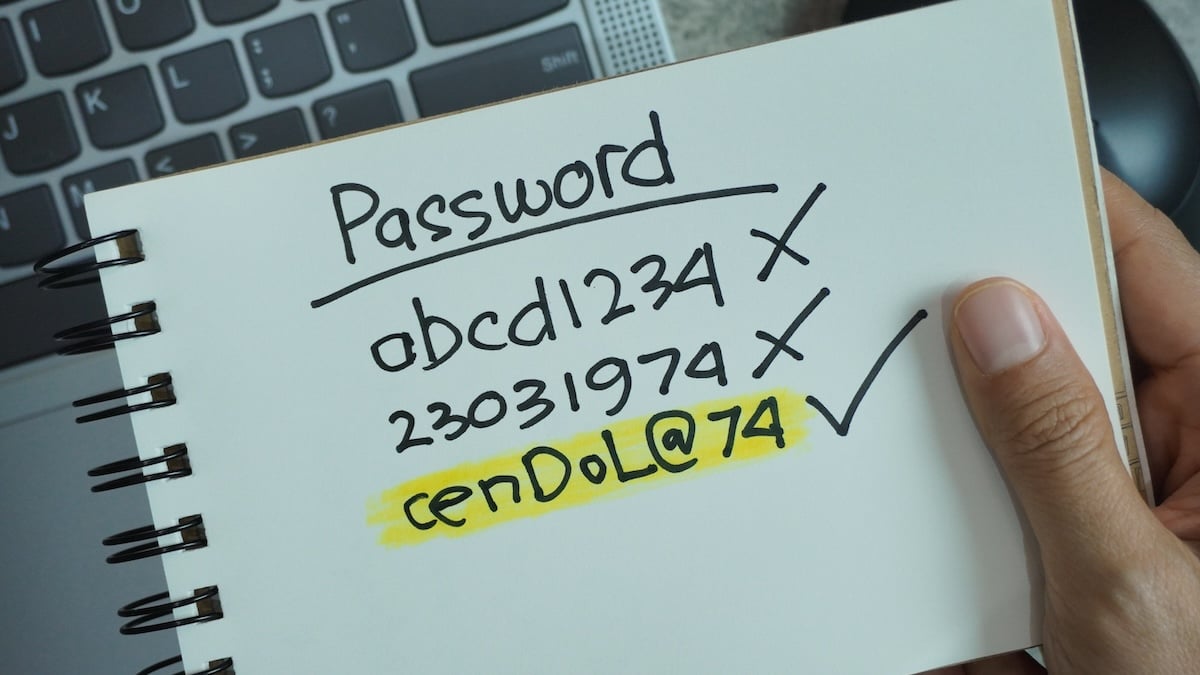 Password
abcd1234 ✗
23031974 ✗
cenDoL@74 ✓
O
I
L
: ;
" '
Shift
J
K
<
>
?
N
M